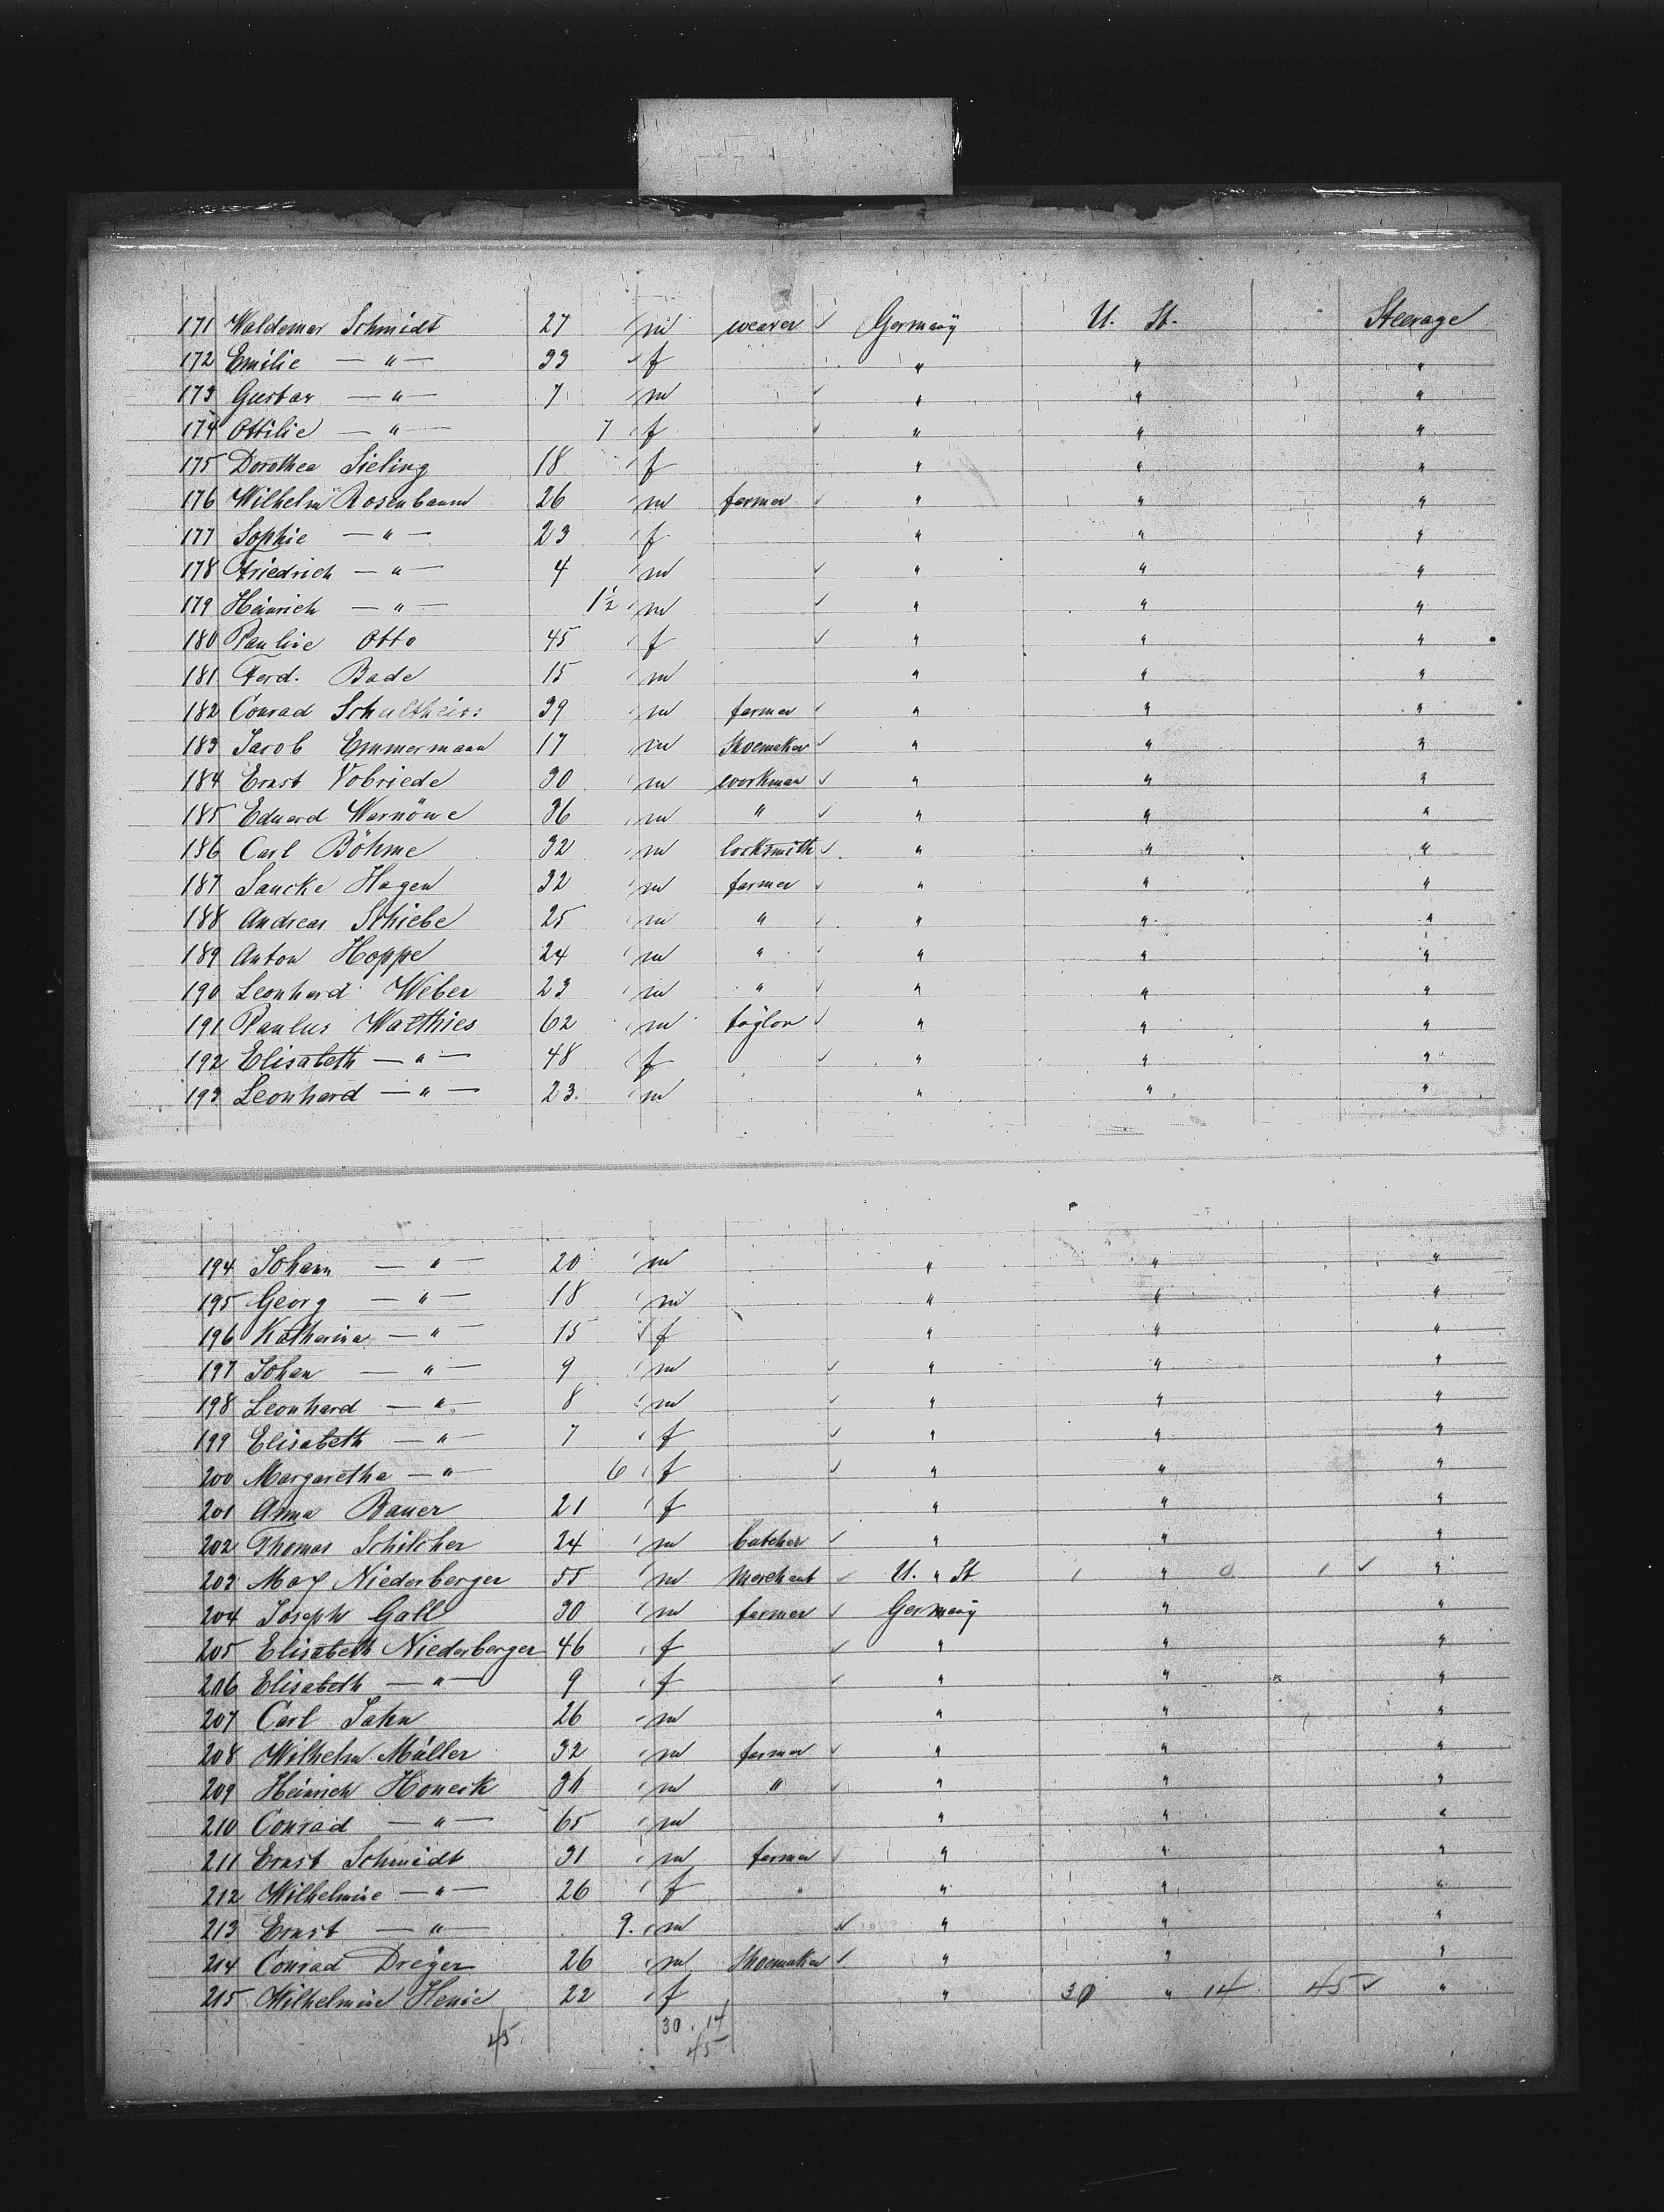 171 Waldemar Schmidt 27 m weaver ✓ Germany U. St. Steerage
172 Emilie — " — 33 f " " "
173 Gustav — " — 7 m ✓ " " "
174 Ottilie — " — 7 f ✓ " " "
175 Dorothea Sieling 18 f " " "
176 Wilhelm Rosenbaum 26 m farmer ✓ " " "
177 Sophie — " — 23 f " " "
178 Friedrich — " — 4 m ✓ " " "
179 Heinrich — " — 1½ m ✓ " " "
180 Pauline Otto 45 f ✓ " " "
181 Ferd. Bade 15 m " " "
182 Conrad Schultheiss 39 m farmer ✓ " " "
183 Jacob Emmermann 17 m Shoemaker ✓ " " "
184 Ernst Vobriede 30 m workman ✓ " " "
185 Eduard Warnöwe 36 m " ✓ " " "
186 Carl Böhme 32 m locksmith ✓ " " "
187 Saucke Hagen 32 m farmer ✓ " " "
188 Andreas Schiebe 25 m " ✓ " " "
189 Anton Hoppe 24 m " ✓ " " "
190 Leonhard Weber 23 m " ✓ " " "
191 Paulus Watthies 62 m taylor ✓ " " "
192 Elisabeth — " — 48 f ✓ " " "
193 Leonhard — " — 23 m " " "
194 Johann — " — 20 m " " "
195 Georg — " — 18 m " " "
196 Katharina — " — 15 f " " "
197 Johan — " — 9 m ✓ " " "
198 Leonhard — " — 8 m ✓ " " "
199 Elisabeth — " — 7 f ✓ " " "
200 Margaretha — " — 6 f ✓ " " "
201 Anna Bauer 21 f " " "
202 Thomas Schilcher 24 m butcher ✓ " " "
203 Max Niederberger 55 m Merchant ✓ U. " St 1 " 0 1 ✓ "
204 Joseph Gall 30 m farmer ✓ Germany " "
205 Elisabeth Niederberger 46 f ✓ " " "
206 Elisabeth — " — 9 f ✓ " " "
207 Carl Jahn 26 m " " "
208 Wilhelm Müller 32 m farmer ✓ " " "
209 Heinrich Honeck 36 m " ✓ " " "
210 Conrad — " — 65 m " " "
211 Ernst Schmidt 31 m farmer ✓ " " "
212 Wilhelmine — " — 26 f " " "
213 Ernst — " — 9 m ✓ " " "
214 Conrad Dreger 26 m Shoemaker ✓ " " "
215 Wilhelmine Henie 22 f " 30 " 14 45 ✓ "
45 30 . 14
45